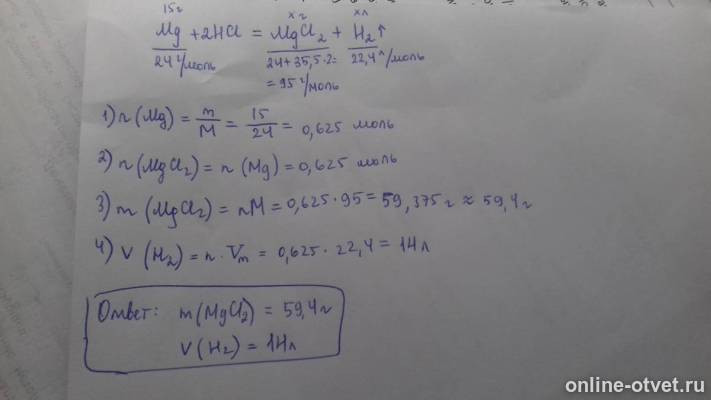 15г хг хл
Mg + 2HCl = MgCl₂ + H₂↑
24 г/моль 24+35,5·2= 22,4 л/моль
= 95 г/моль
1) n (Mg) = m/M = 15/24 = 0,625 моль
2) n (MgCl₂) = n (Mg) = 0,625 моль
3) m (MgCl₂) = nM = 0,625 · 95 = 59,375 г ≈ 59,4 г
4) V (H₂) = n · Vm = 0,625 · 22,4 = 14 л
Ответ: m (MgCl₂) = 59,4 г
V (H₂) = 14 л
online-otvet.ru